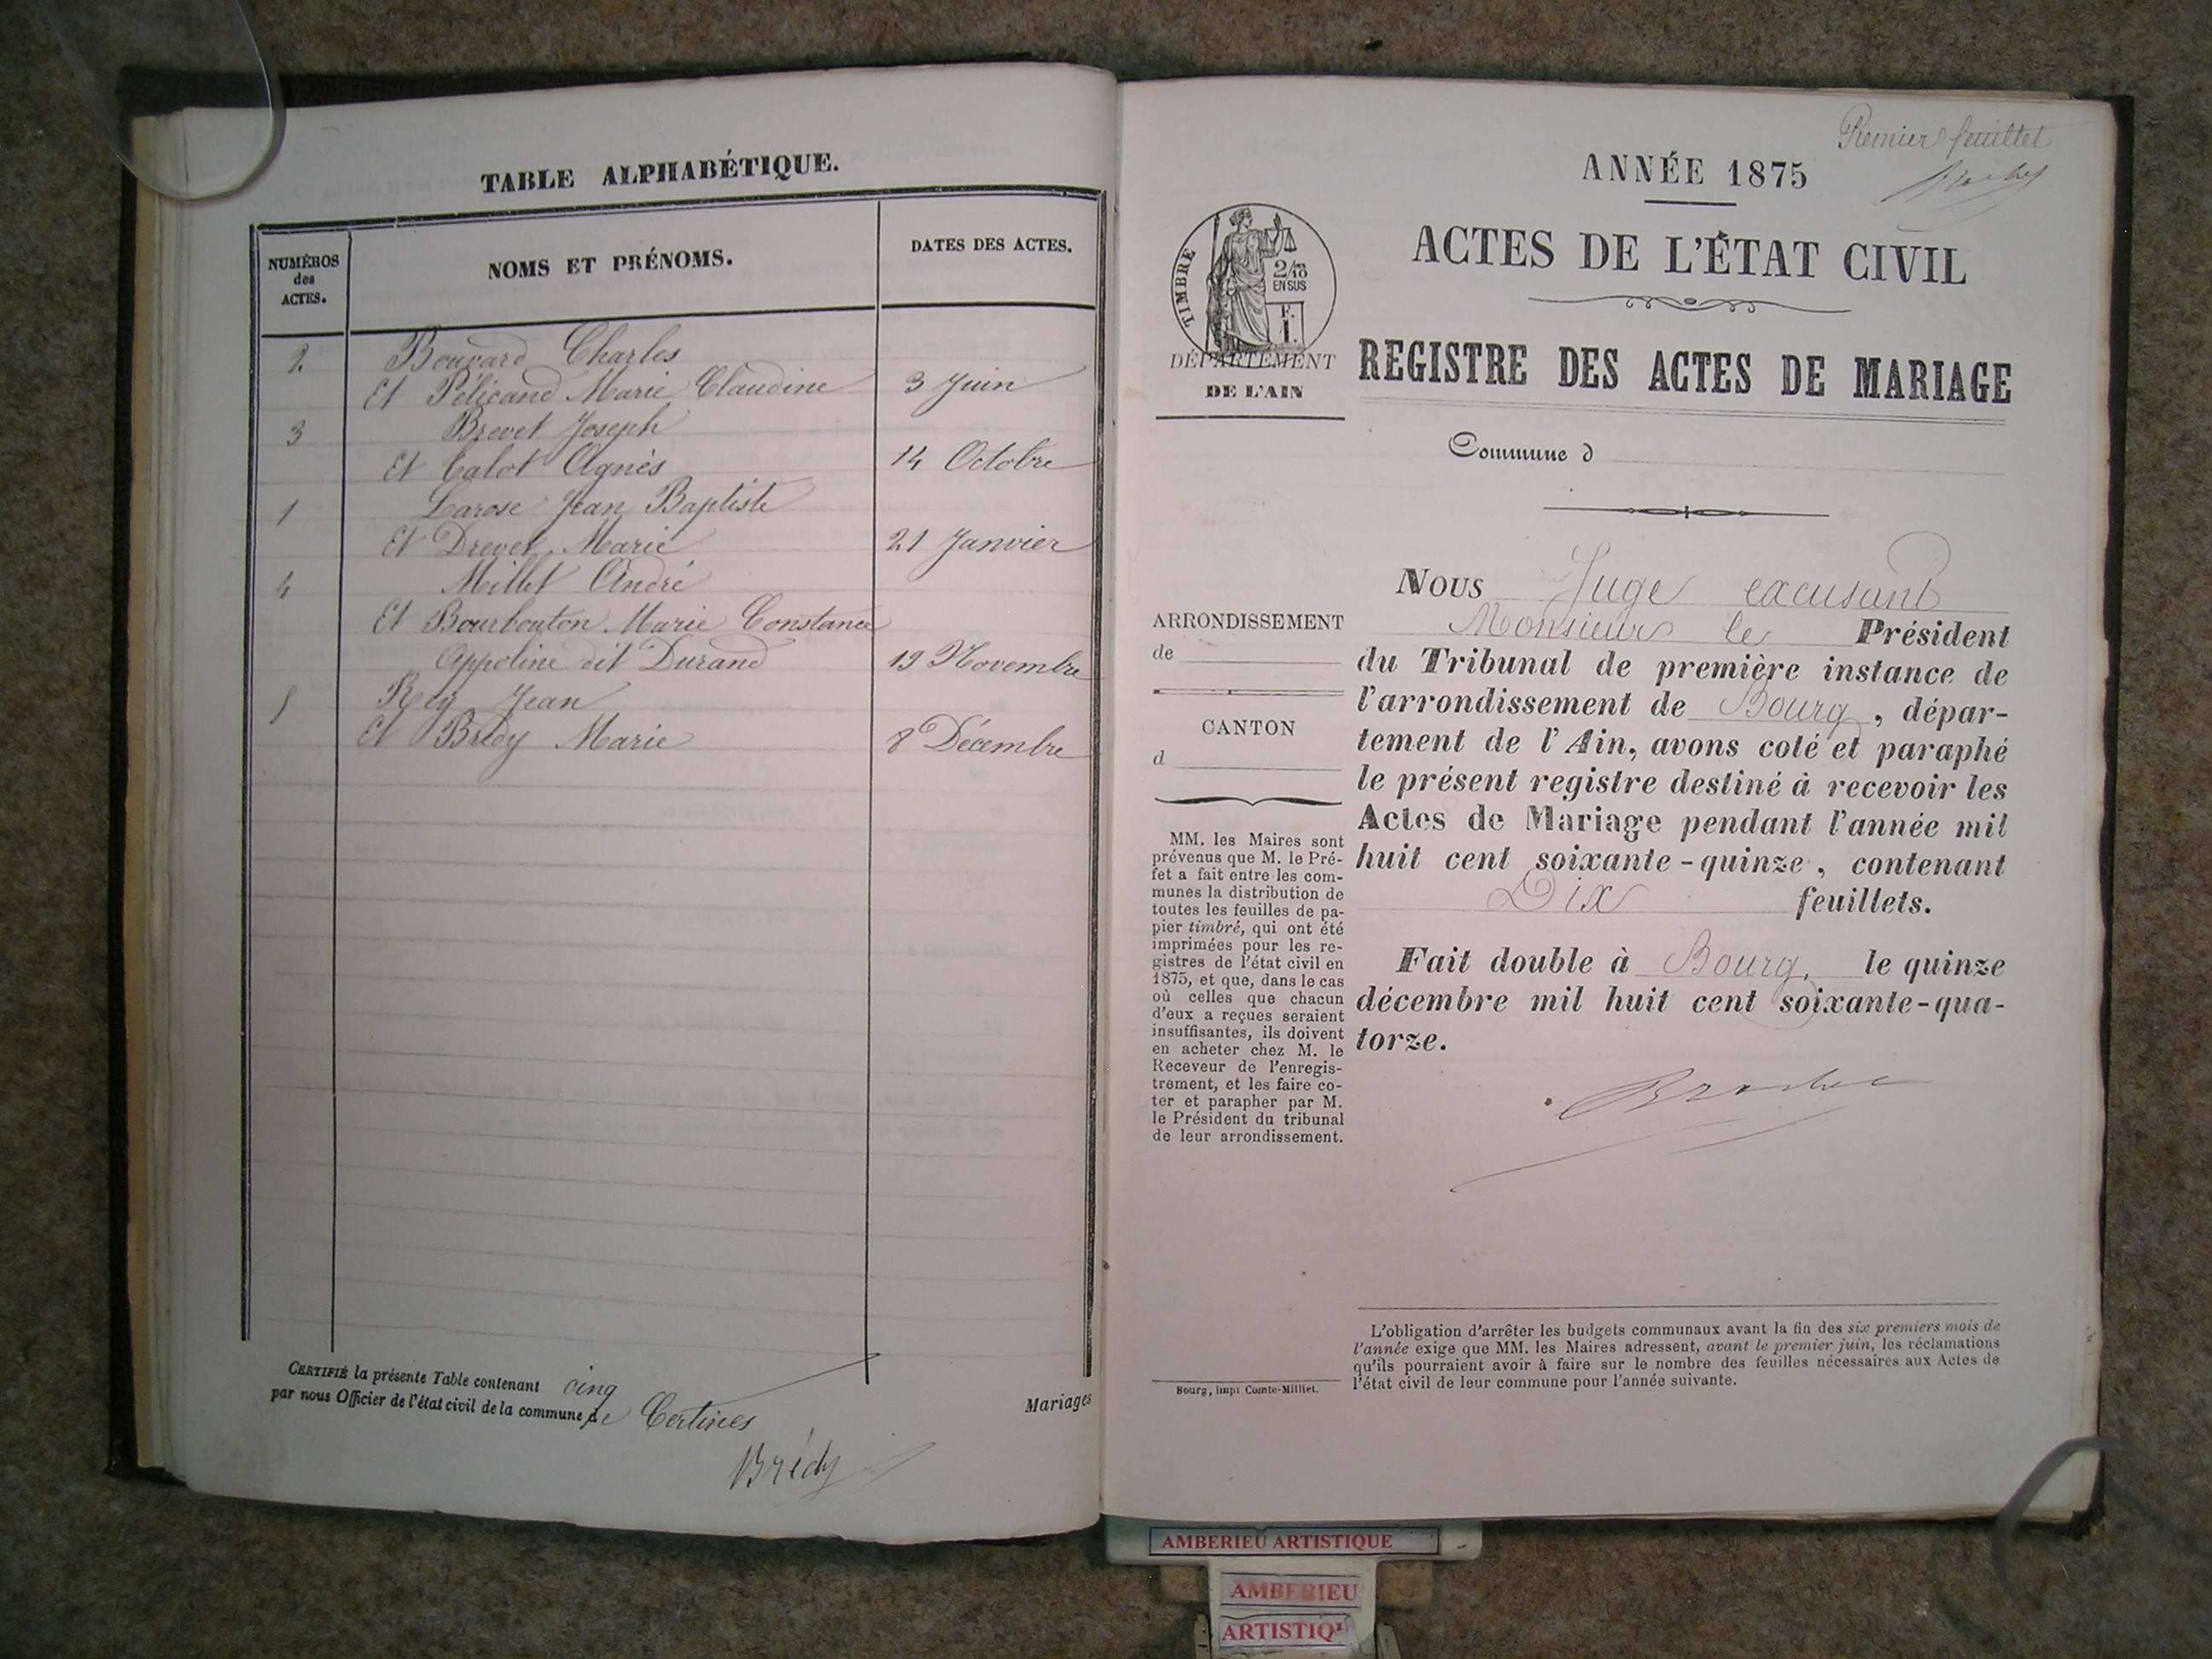 TABLE ALPHABÉTIQUE.
NUMÉROS
des
ACTES.
NOMS ET PRÉNOMS.
DATES DES ACTES.
2 Bouvard Charles
Et Pélicand Marie Claudine 3 Juin
3 Brevet Joseph
Et Calot Agnès 14 Octobre
1 Larose Jean Baptiste
Et Drevet Marie 21 Janvier
4 Millet André
Et Bourbouton Marie Constance
Appoline dit Durand 19 Novembre
5 Rey Jean
Et Brédy Marie 8 Décembre
CERTIFIÉ la présente Table contenant cinq
par nous Officier de l'état civil de la commune de Certines
Mariages
Brédy
Premier feuillet
ANNÉE 1875
ACTES DE L'ÉTAT CIVIL
TIMBRE
2/10
EN SUS
F.
1.
DÉPARTEMENT
DE L'AIN
REGISTRE DES ACTES DE MARIAGE
Commune d
ARRONDISSEMENT
de
CANTON
d
MM. les Maires sont
prévenus que M. le Pré-
fet a fait entre les com-
munes la distribution de
toutes les feuilles de pa-
pier timbré, qui ont été
imprimées pour les re-
gistres de l'état civil en
1875, et que, dans le cas
où celles que chacun
d'eux a reçues seraient
insuffisantes, ils doivent
en acheter chez M. le
Receveur de l'enregis-
trement, et les faire co-
ter et parapher par M.
le Président du tribunal
de leur arrondissement.
Bourg, impr. Comte-Milliet.
NOUS Juge excusant
Monsieur le Président
du Tribunal de première instance de
l'arrondissement de Bourg, dépar-
tement de l'Ain, avons coté et paraphé
le présent registre destiné à recevoir les
Actes de Mariage pendant l'année mil
huit cent soixante-quinze, contenant
Dix feuillets.
Fait double à Bourg, le quinze
décembre mil huit cent soixante-qua-
torze.
L'obligation d'arrêter les budgets communaux avant la fin des six premiers mois de
l'année exige que MM. les Maires adressent, avant le premier juin, les réclamations
qu'ils pourraient avoir à faire sur le nombre des feuilles nécessaires aux Actes de
l'état civil de leur commune pour l'année suivante.
AMBERIEU ARTISTIQUE
AMBERIEU
ARTISTIQU